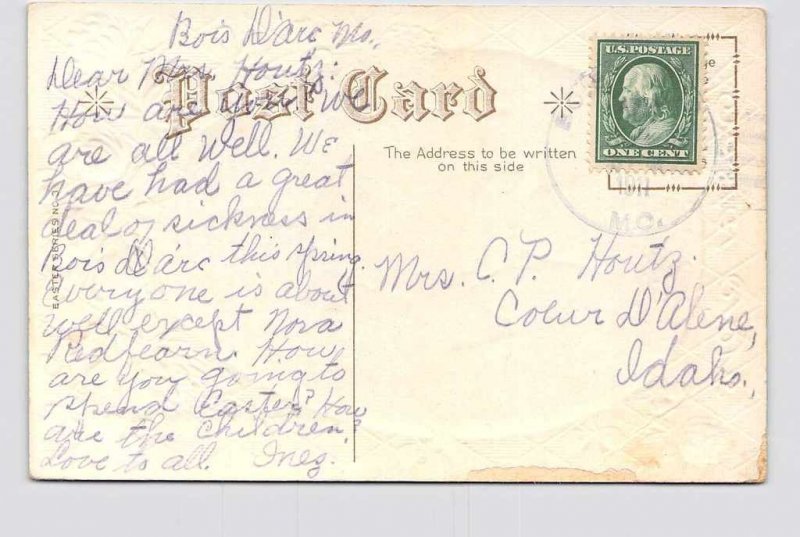 Bois D'arc Mo.
Dear Mrs. Houtz:
How are you? We
are all well. We
have had a great
deal of sickness in
Bois D'arc this spring.
Everyone is about
well except Nora
Redfearn. How
are you going to
spend Easter? How
are the children?
Love to all. Inez.
EASTER SERIES NO.
Post Card
The Address to be written
on this side
U.S. POSTAGE
ONE CENT
1911
MO.
Mrs. C. P. Houtz.
Coeur D'Alene,
Idaho.